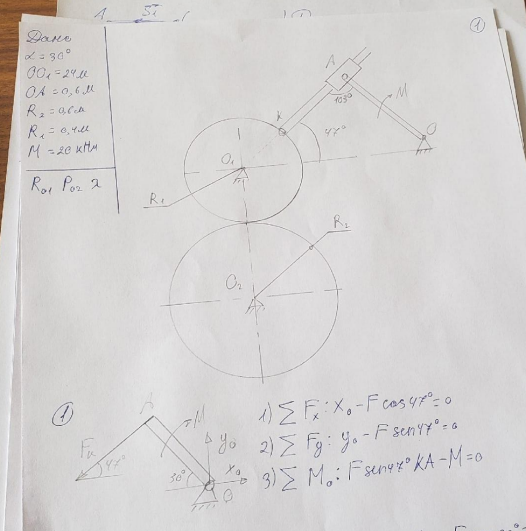 ①
Дано
α = 30°
OO₁ = 24 м
OA = 0,6 м
R₂ = 0,6 м
R₁ = 0,4 м
M = 20 кНм
R₀₁ P₀₂ λ
A
K
103°
M
47°
O
O₁
R₁
R₂
O₂
①
A
M
y₀
47°
30°
x₀
1) ∑ Fx: x₀ – F cos 47° = 0
2) ∑ Fy: y₀ – F sen 47° = 0
3) ∑ M₀: F sen 47° KA – M = 0